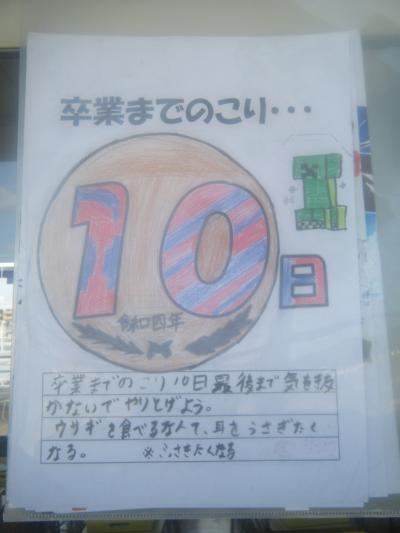 卒業までのこり・・・
10日
令和四年
卒業までのこり10日最後まで気を抜
かないでやりとげよう。
ウサギを食べるなんて、耳をうさぎたく
なる。 ※ふさぎたくなる